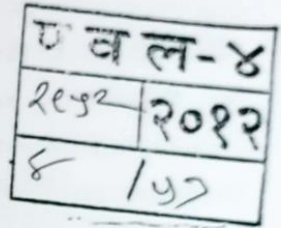 प व ल-४
२८५२ २०१२
४ /५७